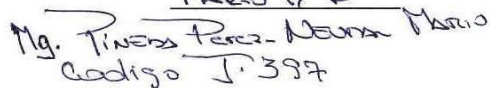 Mg. PINEDA PEREZ-NEUMAN MARIO
Codigo J.397